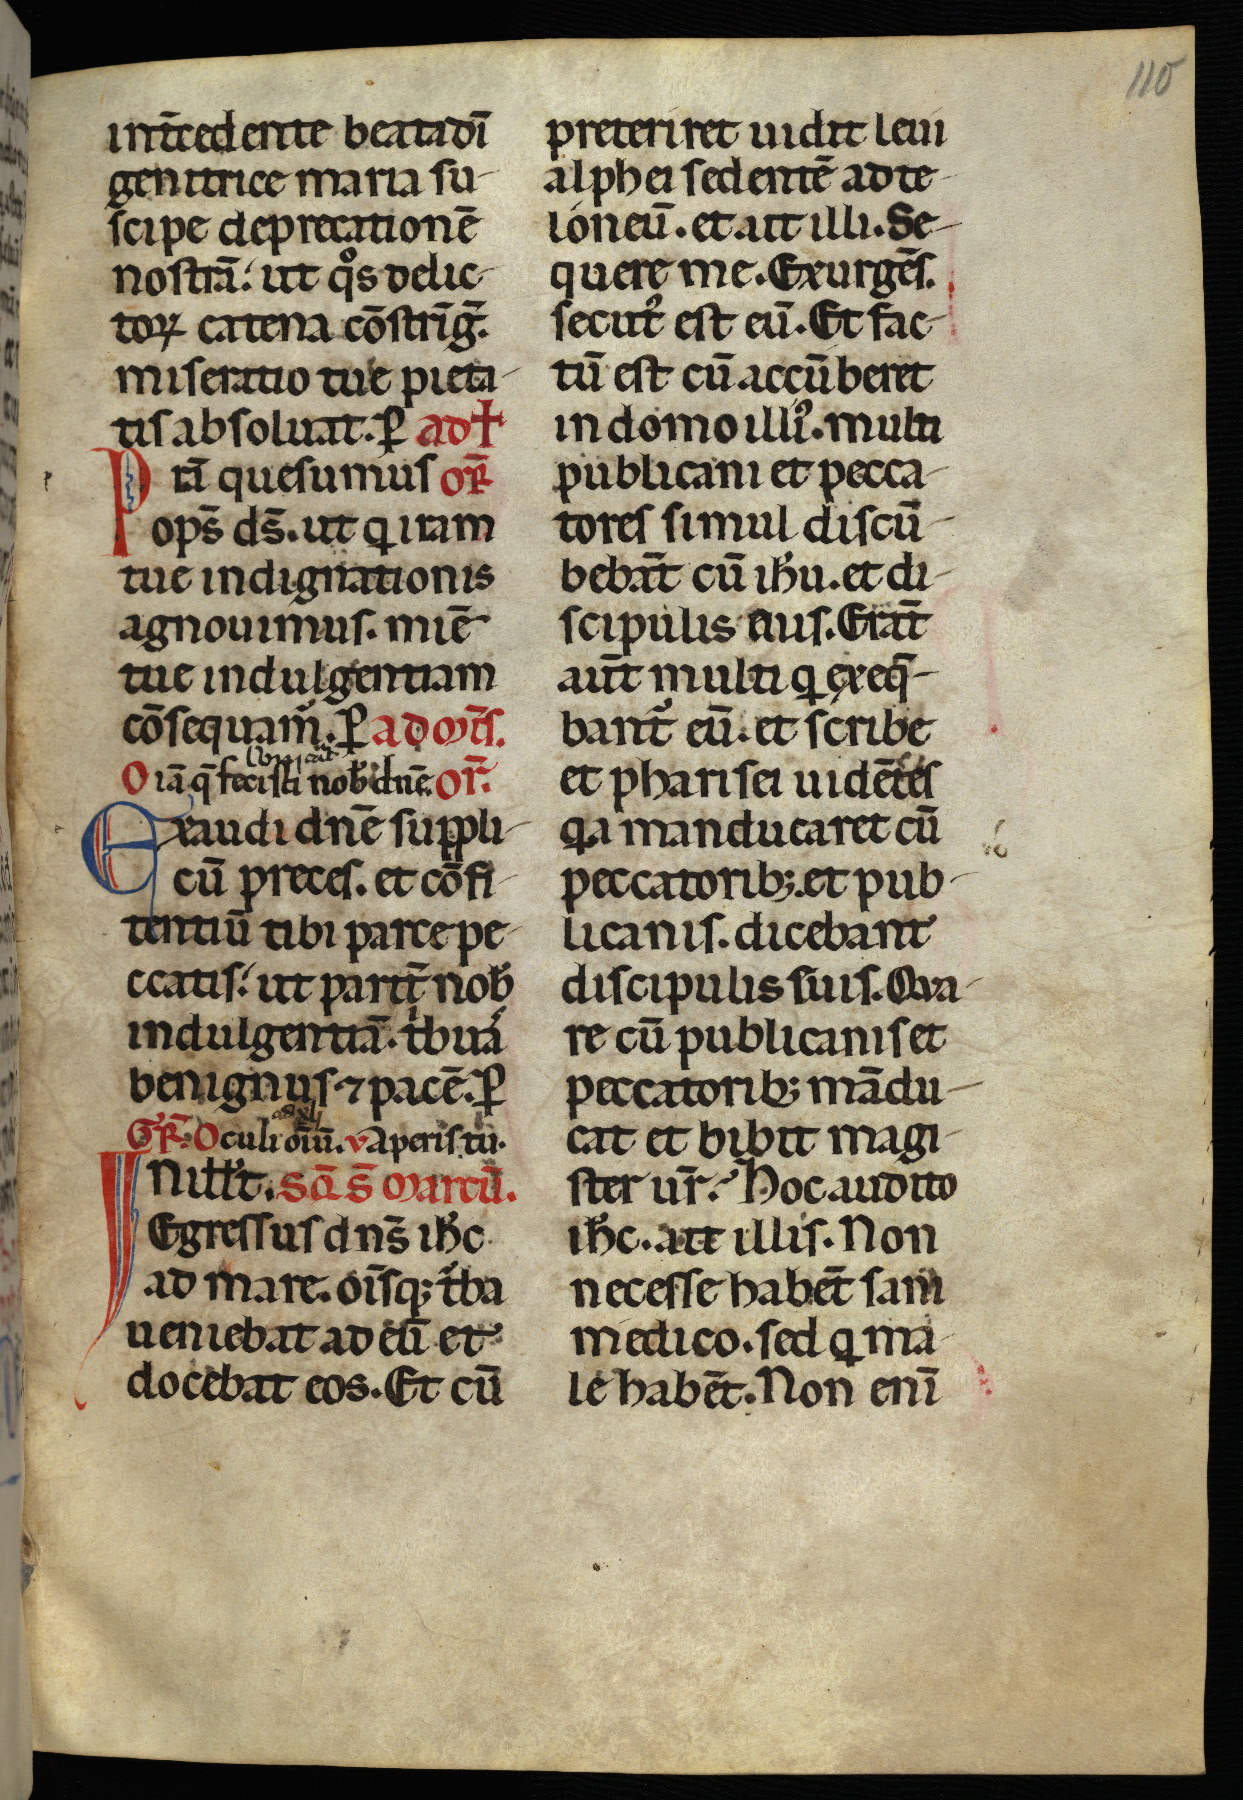 110
int̄cedente beata dī
genitrice maria su-
scipe deprecationē
nostrā. ut qͦs delic-
toꝝ catena cōstrīḡ.
miseratio tue pieta-
tis absoluat. ꝑ ad ✝
Prā quesumus or̄
ops̄ ds̄. ut qi iram
tue indignationis
agnouimus. miē
tue indulgentiam
cōsequam᷑. ꝑ ad mīs.
Oīa q̄ fecisti nob̄ dn̄e. or̄.
Exaudi dn̄e suppli-
cū preces. et cōfi-
tentiū tibi parce pe-
ccatis. ut parit̄ nob̄
indulgentiā. tⁱbuas
benignus ⁊ pacē. ꝑ
ad xl
Gr̄. Oculi oīū. v Aperis tu.
In ill̄ t. Scd̄ s̄ marcū.
Egressus dn̄s ih̄c
ad mare. oīsq; tⁱba
ueniebat ad eū et
docebat eos. Et cū
preteriret uidit leui
alphei sedentē ad te-
loneū. et ait illi. Se-
quere me. Exurgēs.
secut᷑ est eū. Et fac-
tū est cū accūberet
in domo illi᷑. multi
publicani et pecca-
tores simul discū-
bebāt cū ih̄u. et di-
scipulis eius. Erāt
aūt multi qi et seq̄-
bant᷑ eū. et scribe
et pharisei uidētes
qa manducaret cū
peccatorib; et pub-
licanis. dicebant
discipulis suis. Qua-
re cū publicanis et
peccatorib; mādu-
cat et bibit magi-
ster ur̄. Hoc audito
ih̄c. ait illis. Non
necesse habēt sani
medico. sed qi ma-
le habēt. Non enī